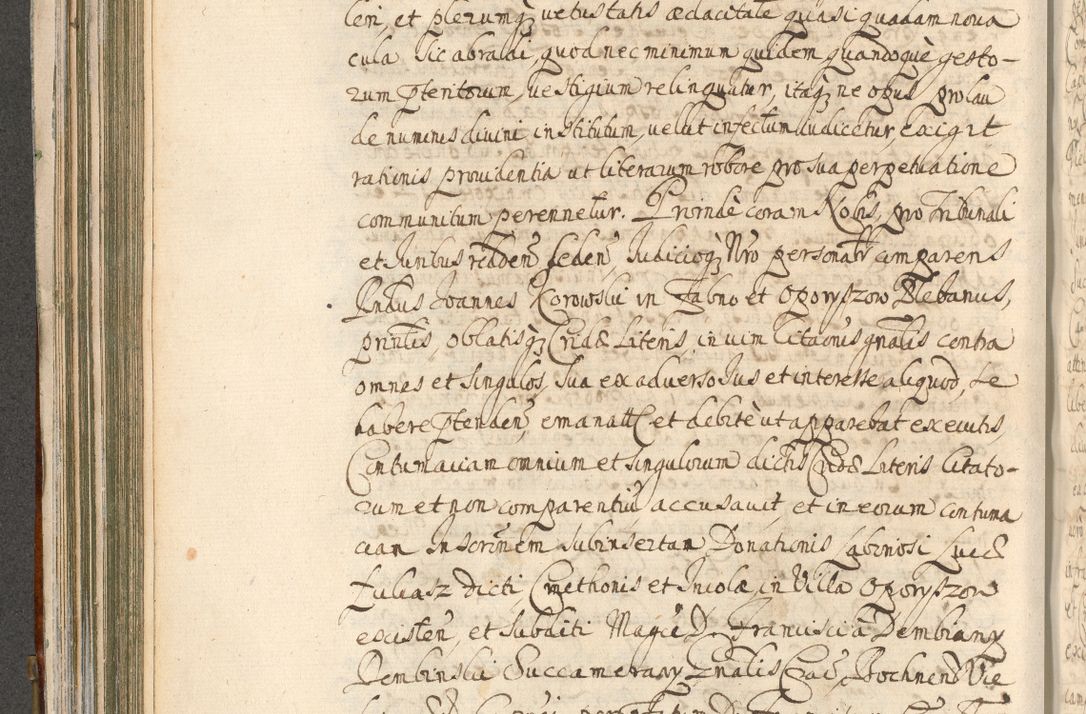 len, et plerumq₃ vetustatis ædacitate quasi quadam nova
cula sic abradi, quod nec minimum quidem quandoquè gesto-
rum ptentorum, vestigium relinquatur, itaq₃ ne opus pro lau
de numinis divini institutum, velut infectum iudicetur, exigit
rationis providentia ut literarum robore pro sua perpetuatione
communitum perennetur. Proindè coram Nobis, pro Tribunali
et Juribus redden̄ seden̄, Judicioq₃ Nrō personalr̄ comparens
Rndus Joannes Korowski in Fabno et Oporyszow Plebanus,
prntis, oblatisq₃ Literis, in vim Citaōnis gnalis contra
omnes et singulos, sua ex adverso Jus et interesse aliquod, se
habere ptenden̄, emanat et debitè ut apparebat executis,
Contumaciam omnium et singulorum dictis Literis Citato-
rum et non comparentiū accusavit, et in eorum contuma
ciam Inscrōnem subinsertam Donationis Laboriosi Lucæ
Łukasz dicti Cmethonis et Incolæ, in Villa Oporyszow
existen̄, et subditi Magci D. Francisci à Dembiany
Dembinski Succamerary Gnalis Crac̄, Bochnen̄ Vie